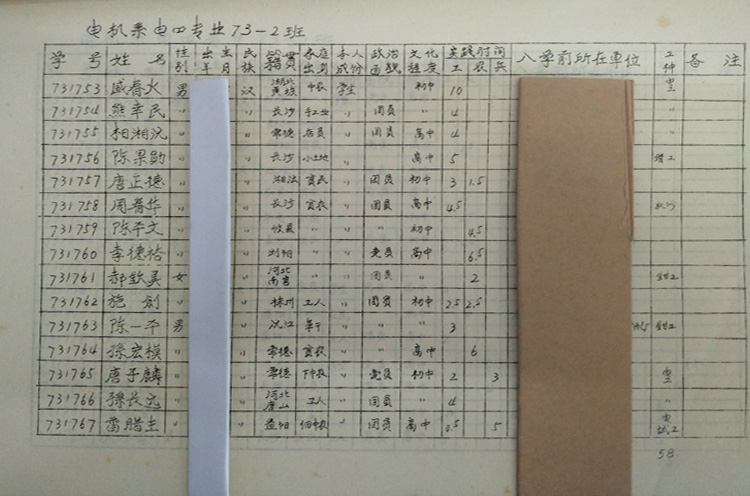 电机系电四专业73-2班
学号 姓名 性别 出生年月 民族 籍贯 家庭出身 本人成份 政治面貌 文化程度 实践时间 工 农 兵 入学前所在单位 工种 备注
731753 盛春水 男 汉 湖北 黄陂 中农 学生 初中 10
731754 熊幸民 〃 〃 长沙 手工业 〃 团员 〃 4 〃
731755 〃 〃 常德 店员 〃 团员 高中 4 〃
731756 陈果勋 〃 〃 长沙 小土地 〃 高中 5
731757 唐正德 〃 〃 贫农 〃 团员 初中 3 1.5
731758 周普华 〃 〃 长沙 贫农 〃 团员 高中 4.5
731759 陈平文 〃 〃 攸县 〃 〃 初中 4.5
731760 李德裕 〃 〃 浏阳 〃 〃 党员 高中 6.5
731761 女 〃 河北 南宫 〃 〃 团员 〃 2 钳工
731762 施剑 〃 〃 株州 工人 〃 团员 初中 2.5 2.5
731763 陈一平 男 〃 沅江 〃 〃 〃 3 钳工
731764 孙宏模 〃 〃 常德 贫农 〃 〃 高中 6
731765 唐子麟 〃 〃 常德 下中农 〃 党员 初中 2 3
731766 孙长远 〃 〃 河北 唐山 工人 〃 团员 〃 4 〃
731767 雷腊生 〃 〃 益阳 佃中农 〃 团员 高中 0.5 5
58